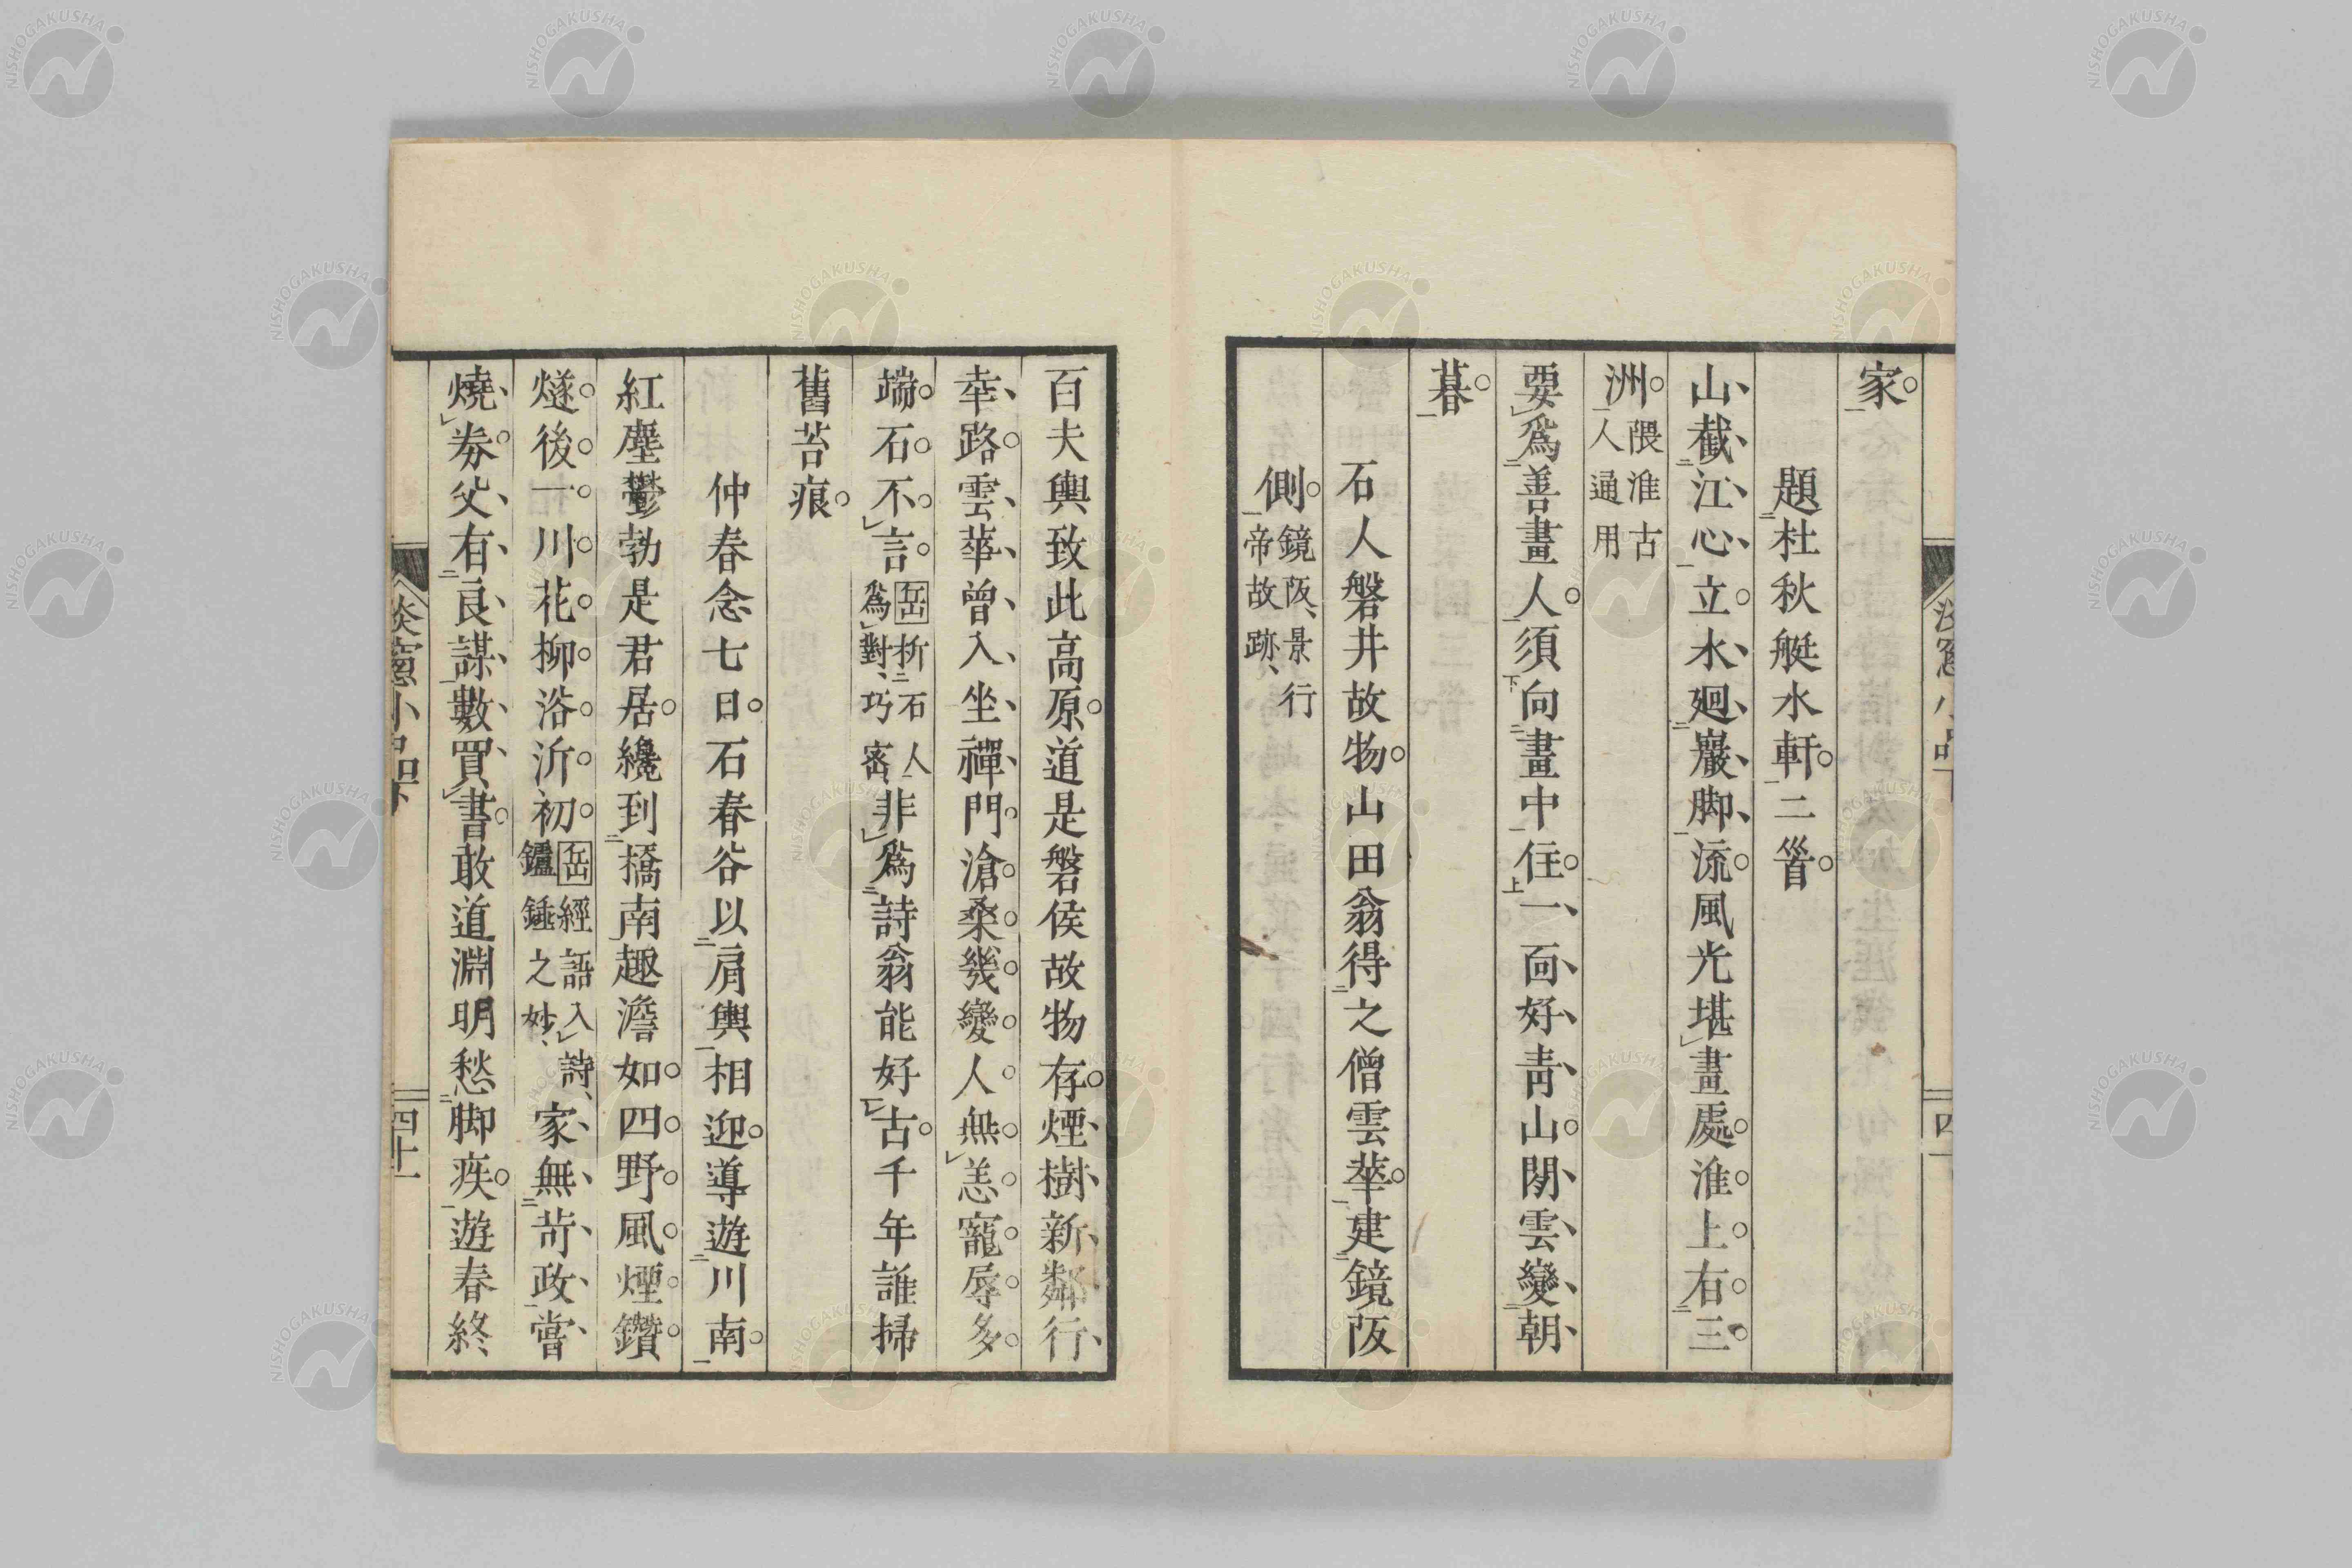 家。
題杜秋艇水軒。二首。
山截江心立水廻巖脚流風光堪畫處淮上右三
洲。隈淮古人通用
要爲善畫人。須向畫中住。一面好青山閑雲變朝
暮。
石人磐井故物。山田翁得之僧雲華。建鏡阪
側。鏡阪、景行帝故跡、
百夫輿致此高原。道是磐侯故物存。煙樹新鄰行
幸路雲華曾入坐禪門滄桑幾變人無恙寵辱多
端石不言。岳折石人爲對、巧密、非爲詩翁能好古。千年誰掃
舊苔痕。
仲春念七日。石春谷以肩輿相迎。導遊川南。
紅塵鬱勃是君居。纔到橋南趣澹如。四野風煙鑽
燧後一川花柳浴沂初。岳經語入詩、鑪錘之妙、家無苛政嘗
燒券父有良謀數買書。敢道淵明愁脚疾。遊春終
淡窻小品下
四十一